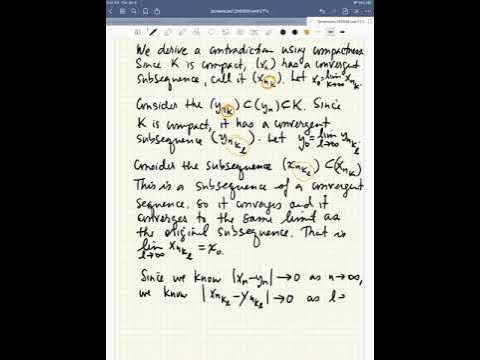 We derive a contradiction using compactness.
Since K is compact, (xₙ) has a convergent
subsequence, call it (xₙₖ). Let x₀=lim xₙₖ.
k→∞
Consider the (yₙₖ)⊂(yₙ)⊆K. Since
K is compact, it has a convergent
subsequence (yₙₖₗ). Let y₀=lim yₙₖₗ
l→∞
Consider the subsequence (xₙₖₗ)⊂(xₙₖ)
This is a subsequence of a convergent
sequence, so it converges and it
converges to the same limit as
the original subsequence. That is
lim xₙₖₗ = x₀.
l→∞
Since we know |xₙ-yₙ|→0 as n→∞,
we know |xₙₖₗ-yₙₖₗ|→0 as l→